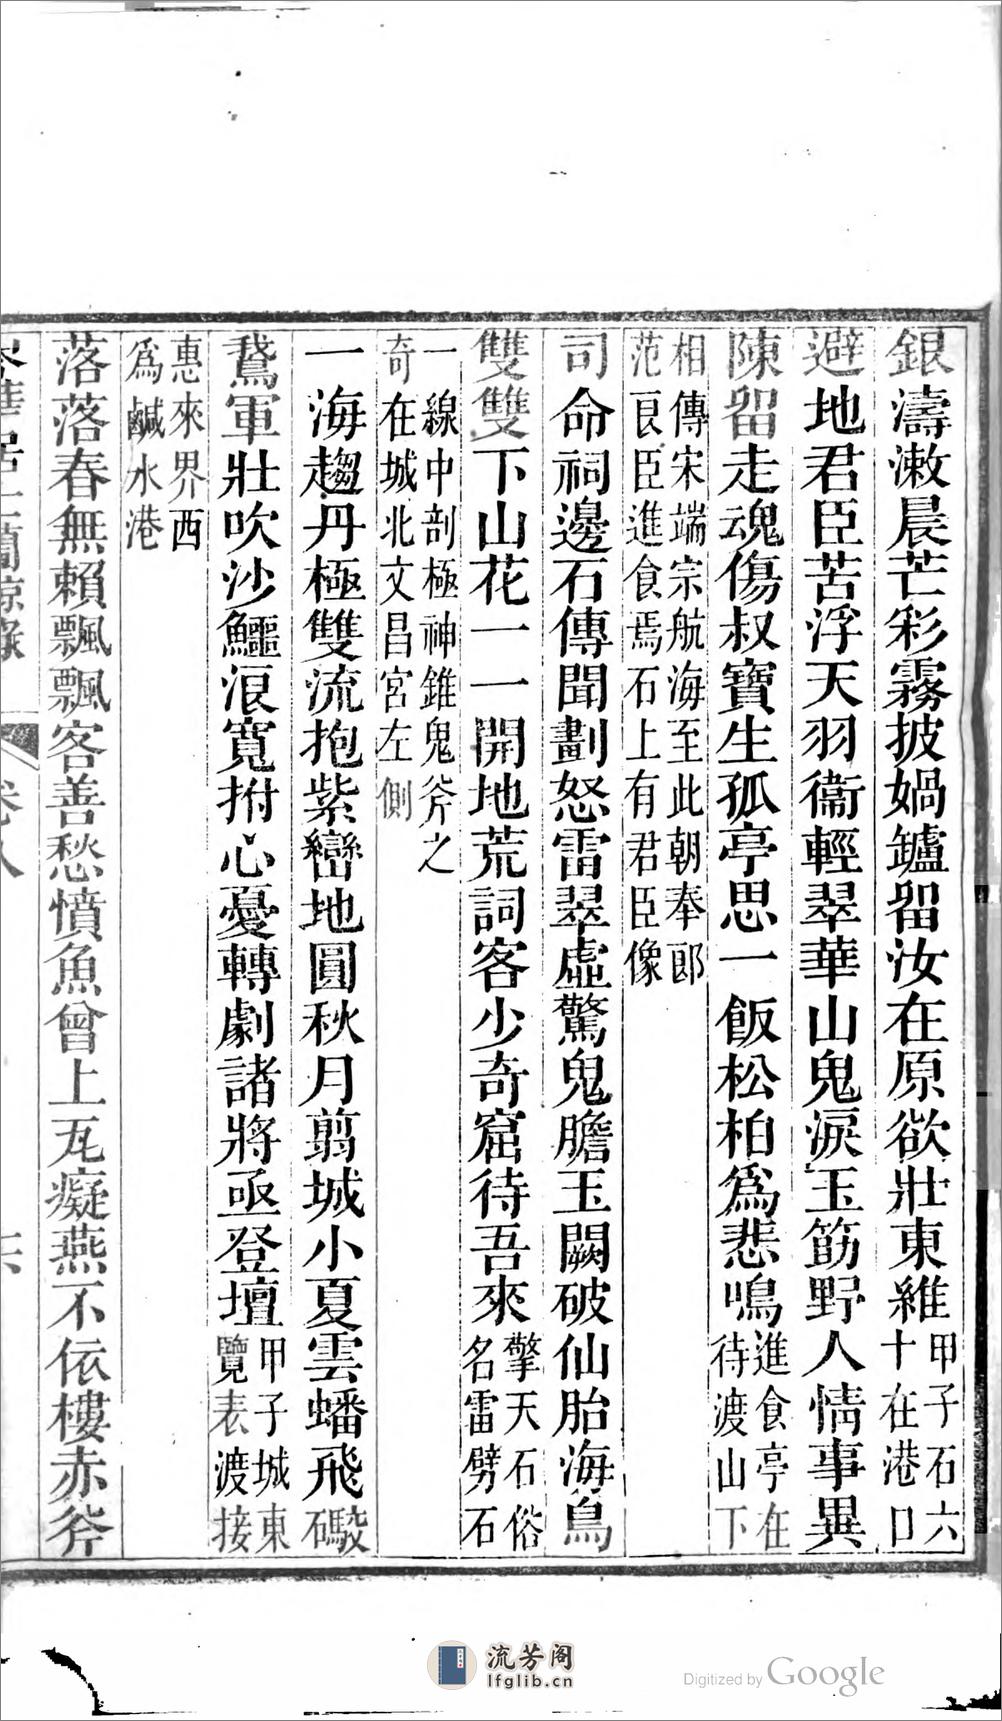 銀濤漱晨芒彩霧披媧鑪留汝在原欲壯東維甲子石六
十在港口
避地君臣苦浮天羽衞輕翠華山鬼淚玉筯野人情事異
陳留走魂傷叔寶生孤亭思一飯松柏爲悲鳴進食亭在
待渡山下
相傳宋端宗航海至此朝奉郎
范良臣進食焉石上有君臣像
司命祠邊石傳聞劃怒雷翠虛驚鬼膽玉闕破仙胎海鳥
雙雙下山花一一開地荒詞客少奇窟待吾來擎天石俗
名雷劈石
一線中剖極神錐鬼斧之
奇在城北文昌宮左側
一海趨丹極雙流抱紫巒地圓秋月翦城小夏雲蟠飛礮
鵞軍壯吹沙鱷浪寬拊心憂轉劇諸將亟登壇甲子城東
覽表渡接
惠來界西
爲鹹水港
落落春無賴飄飄客善愁憤魚曾上瓦癡燕不依樓赤斧
卷八
流芳阁
lfglib.cn
Digitized by Google